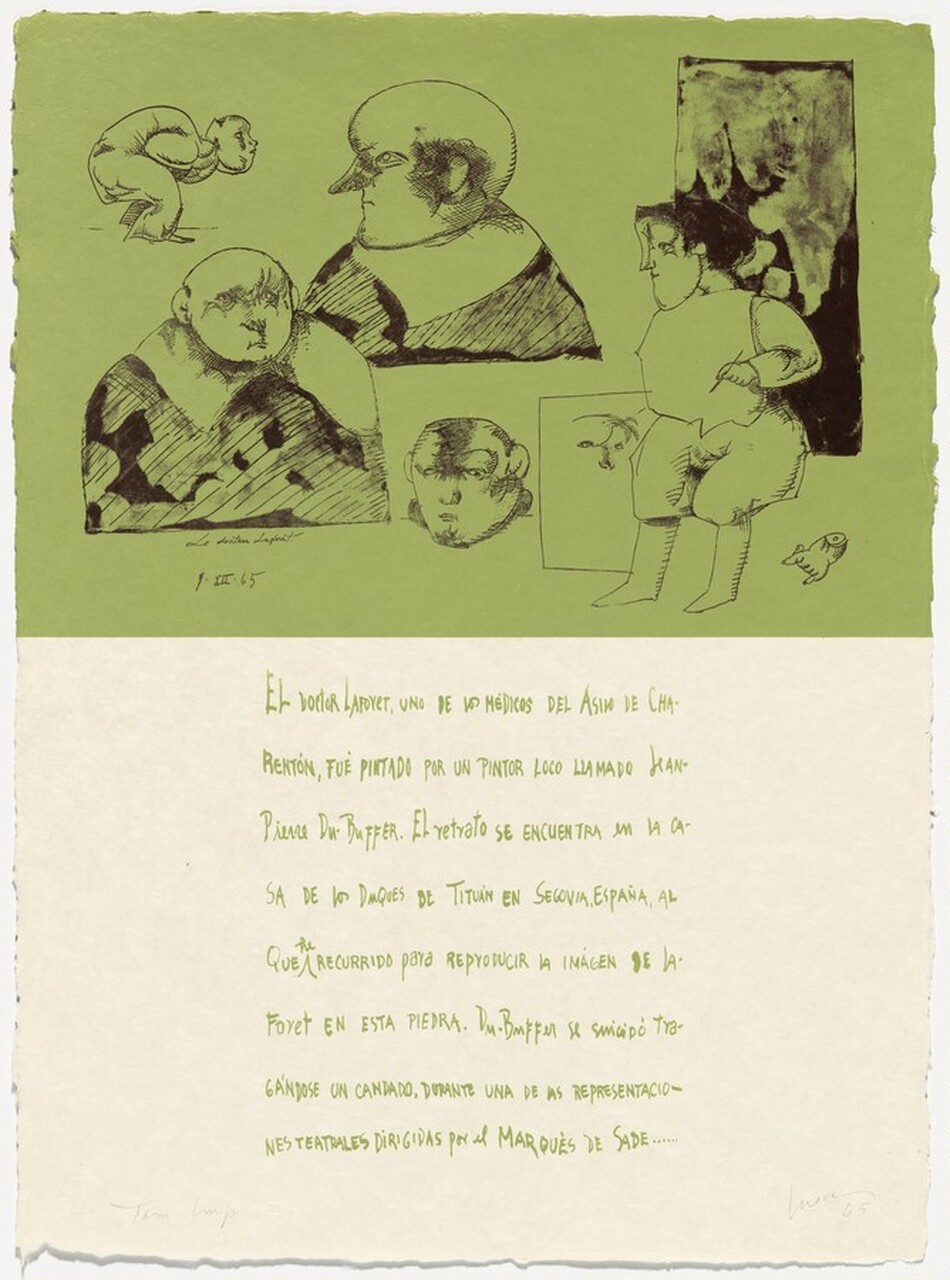 Le docteur Laforêt
9·XII·65
EL DOCTOR LAFORET, UNO DE LOS MÉDICOS DEL ASILO DE CHA-
RENTÓN, FUÉ PINTADO POR UN PINTOR LOCO LLAMADO JEAN-
PIERRE DU-BUFFER. EL retrato SE ENCUENTRA en LA CA-
SA DE LOS DUQUES DE TITUÁN EN SEGOVIA, ESPAÑA, AL
QUE HE RECURRIDO para REPRODUCIR LA IMÁGEN DE LA-
FORET EN ESTA PIEDRA. DU-BUFFER se suicidó TRA-
GÁNDOSE UN CANDADO, DURANTE UNA DE LAS REPRESENTACIO-
NES TEATRALES DIRIGIDAS por el MARQUÈS DE SADE......
Tam. Imp
Cuevas 65